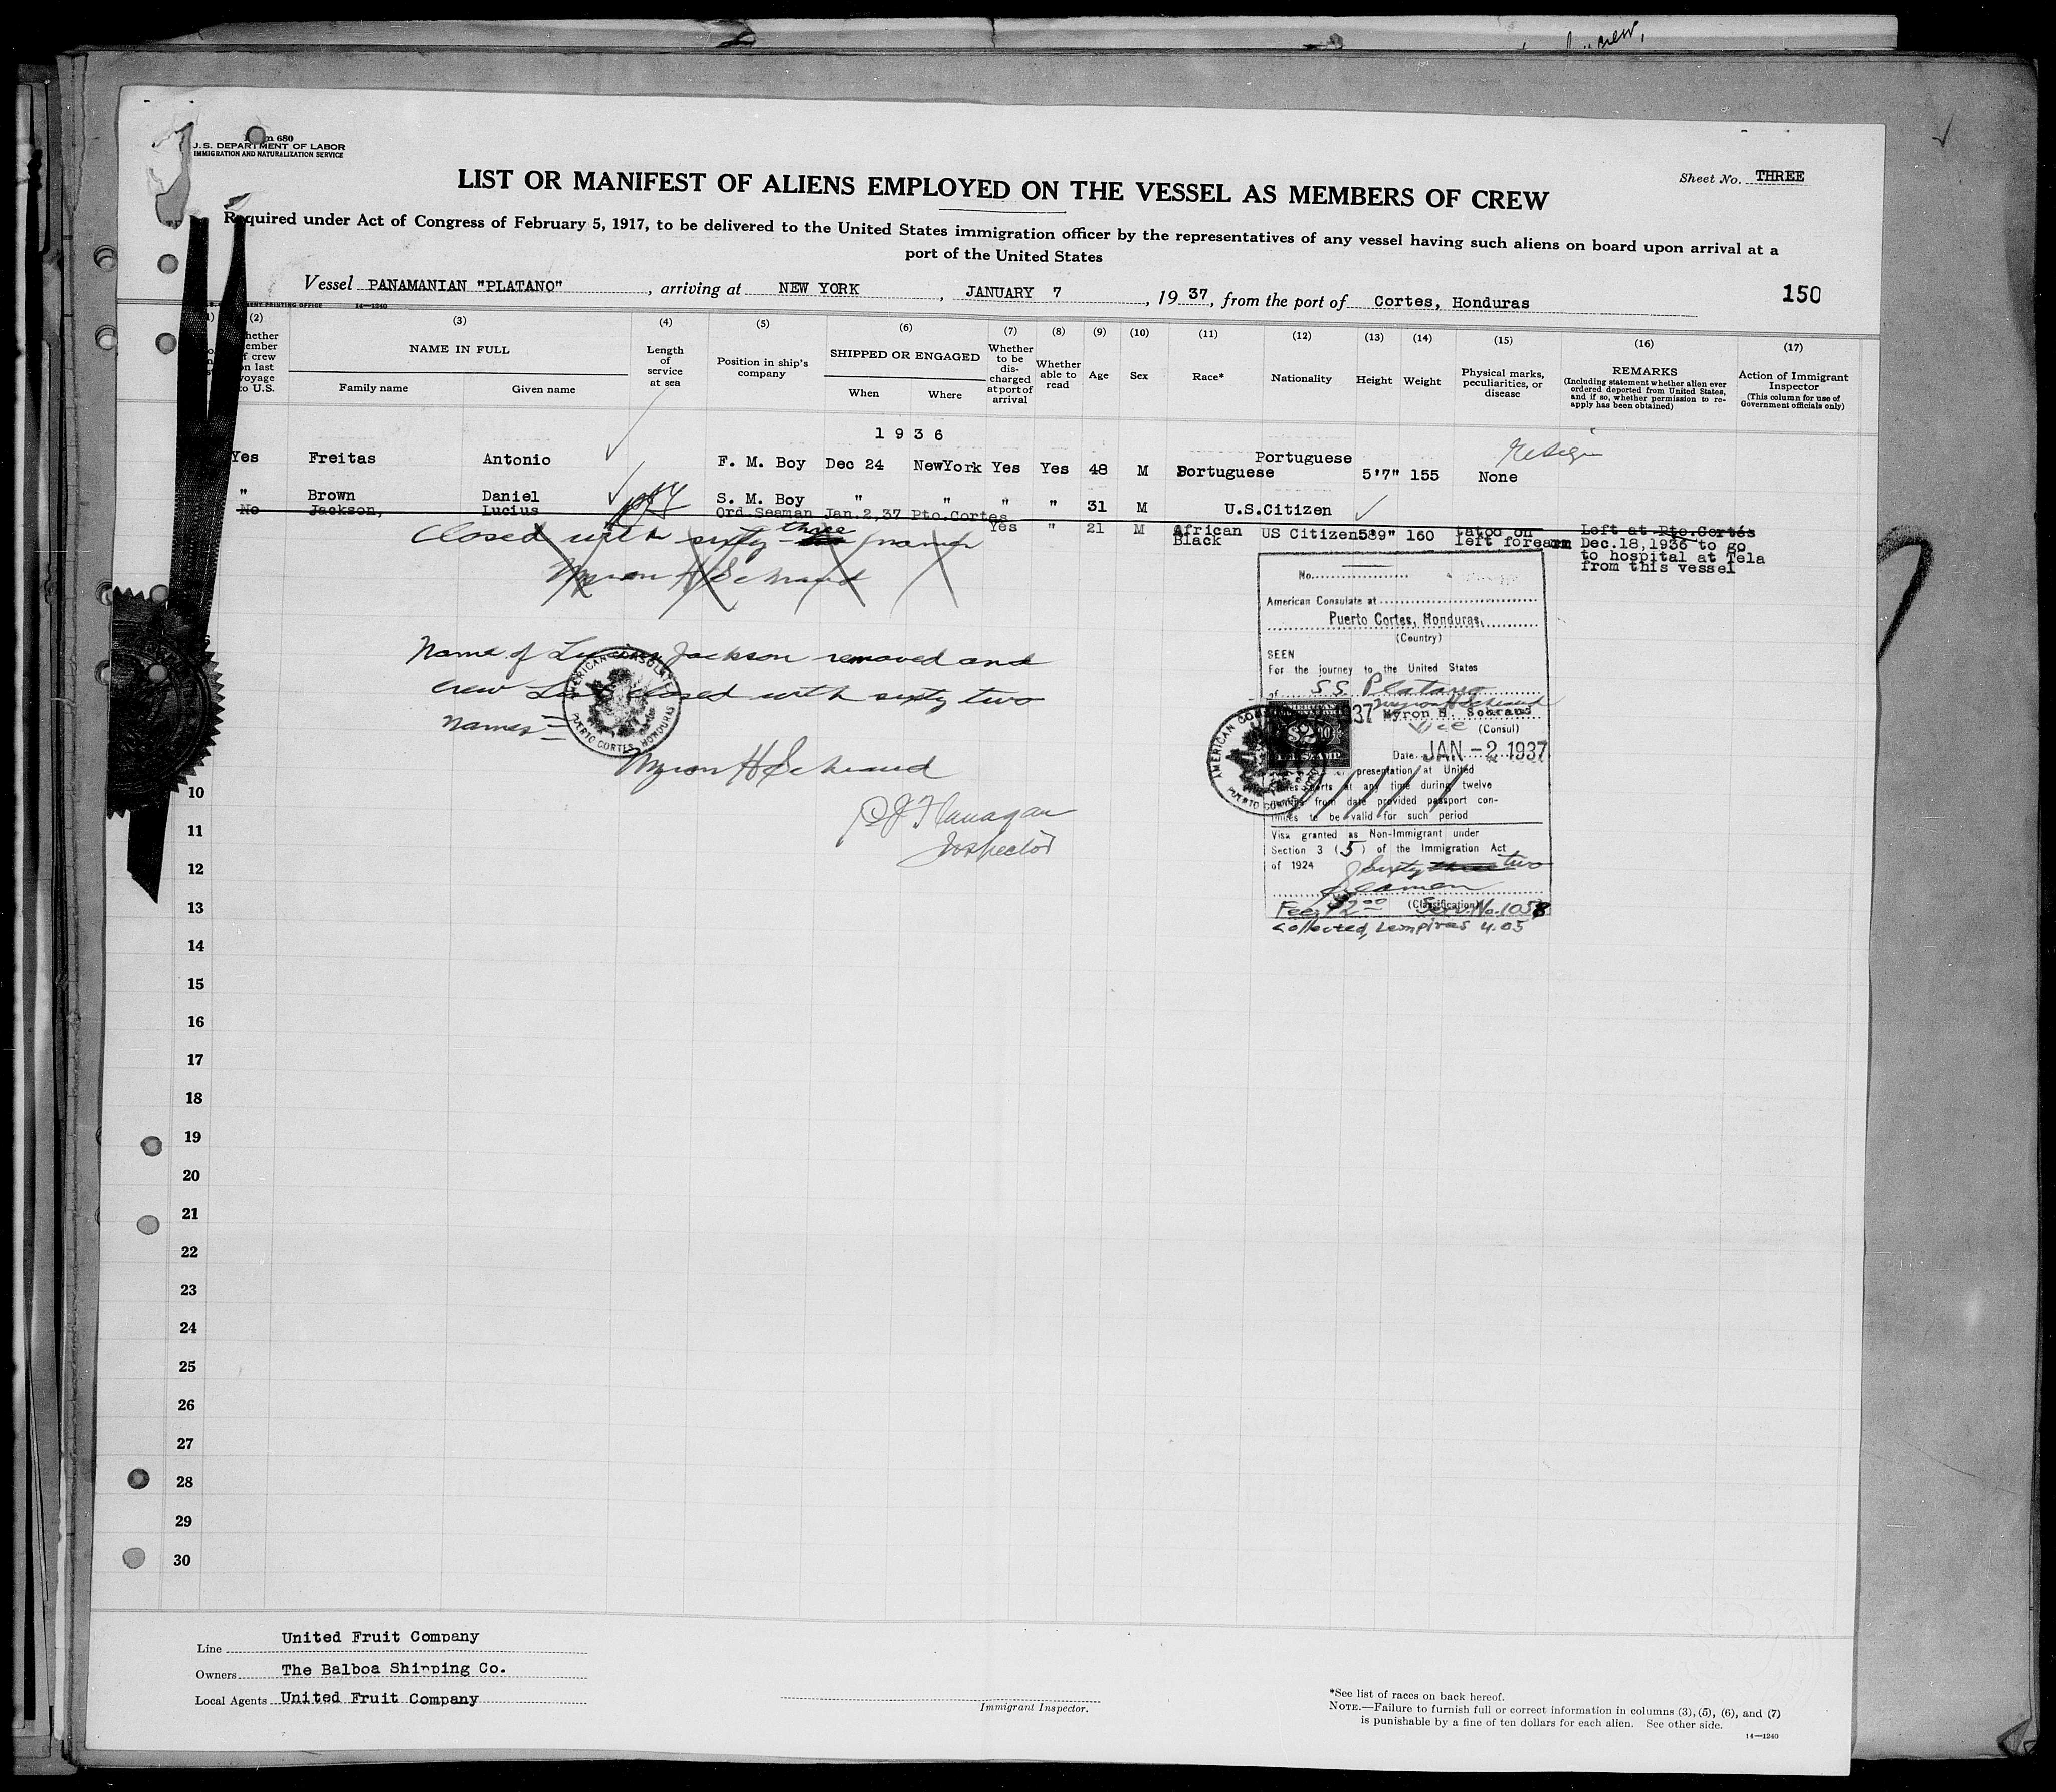 crew,
Form 680
U.S. DEPARTMENT OF LABOR
IMMIGRATION AND NATURALIZATION SERVICE
Sheet No. THREE
LIST OR MANIFEST OF ALIENS EMPLOYED ON THE VESSEL AS MEMBERS OF CREW
Required under Act of Congress of February 5, 1917, to be delivered to the United States immigration officer by the representatives of any vessel having such aliens on board upon arrival at a
port of the United States
Vessel PANAMANIAN "PLATANO", arriving at NEW YORK, JANUARY 7, 1937, from the port of Cortes, Honduras
150
14—1240
(2) (3) (4) (5) (6) (7) (8) (9) (10) (11) (12) (13) (14) (15) (16) (17)
Whether member of crew on last voyage to U.S.
NAME IN FULL
Family name
Given name
Length of service at sea
Position in ship's company
SHIPPED OR ENGAGED
When
Where
Whether to be discharged at port of arrival
Whether able to read
Age
Sex
Race*
Nationality
Height
Weight
Physical marks, peculiarities, or disease
REMARKS
(Including statement whether alien ever ordered deported from United States, and if so, whether permission to re-apply has been obtained)
Action of Immigrant Inspector
(This column for use of Government officials only)
1936
Yes Freitas Antonio F. M. Boy Dec 24 NewYork Yes Yes 48 M Portuguese Portuguese 5'7" 155 None
" Brown Daniel S. M. Boy " " " " 31 M U.S.Citizen
No Jackson, Lucius Ord.Seaman Jan.2,37 Pto.Cortes Yes " 21 M African Black US Citizen 5'8 9" 160 tatoo on left forearm Left at Pto.Cortés
Dec.18,1936 to go
to hospital at Tela
from this vessel
Closed with sixty - three names
Myron H Schraud
Name of Lucius Jackson removed and
crew List closed with sixty two
names
AMERICAN CONSULATE
PUERTO CORTES, HONDURAS
Myron H Schraud
P J Flanagan
Inspector
No.
American Consulate at
Puerto Cortes, Honduras,
(Country)
SEEN
For the journey to the United States
of S.S. Platano
Myron H Schraud
1937 Myron H. Schraud
Vice (Consul)
Date JAN -2 1937
AMERICAN CONSULATE
PUERTO CORTES, HONDURAS
presentation at United
ports at any time during twelve
months from date provided passport con-
tinues to be valid for such period
Visa granted as Non-Immigrant under
Section 3 (5) of the Immigration Act
of 1924 Sixty three two
Seamen
(Classification)
Fee: $2.00 Serv. No. 1058
Collected, Lempiras 4.05
10
11
12
13
14
15
16
17
18
19
20
21
22
23
24
25
26
27
28
29
30
Line United Fruit Company
Owners The Balboa Shipping Co.
Local Agents United Fruit Company
Immigrant Inspector.
*See list of races on back hereof.
NOTE.—Failure to furnish full or correct information in columns (3), (5), (6), and (7)
is punishable by a fine of ten dollars for each alien. See other side.
14—1240